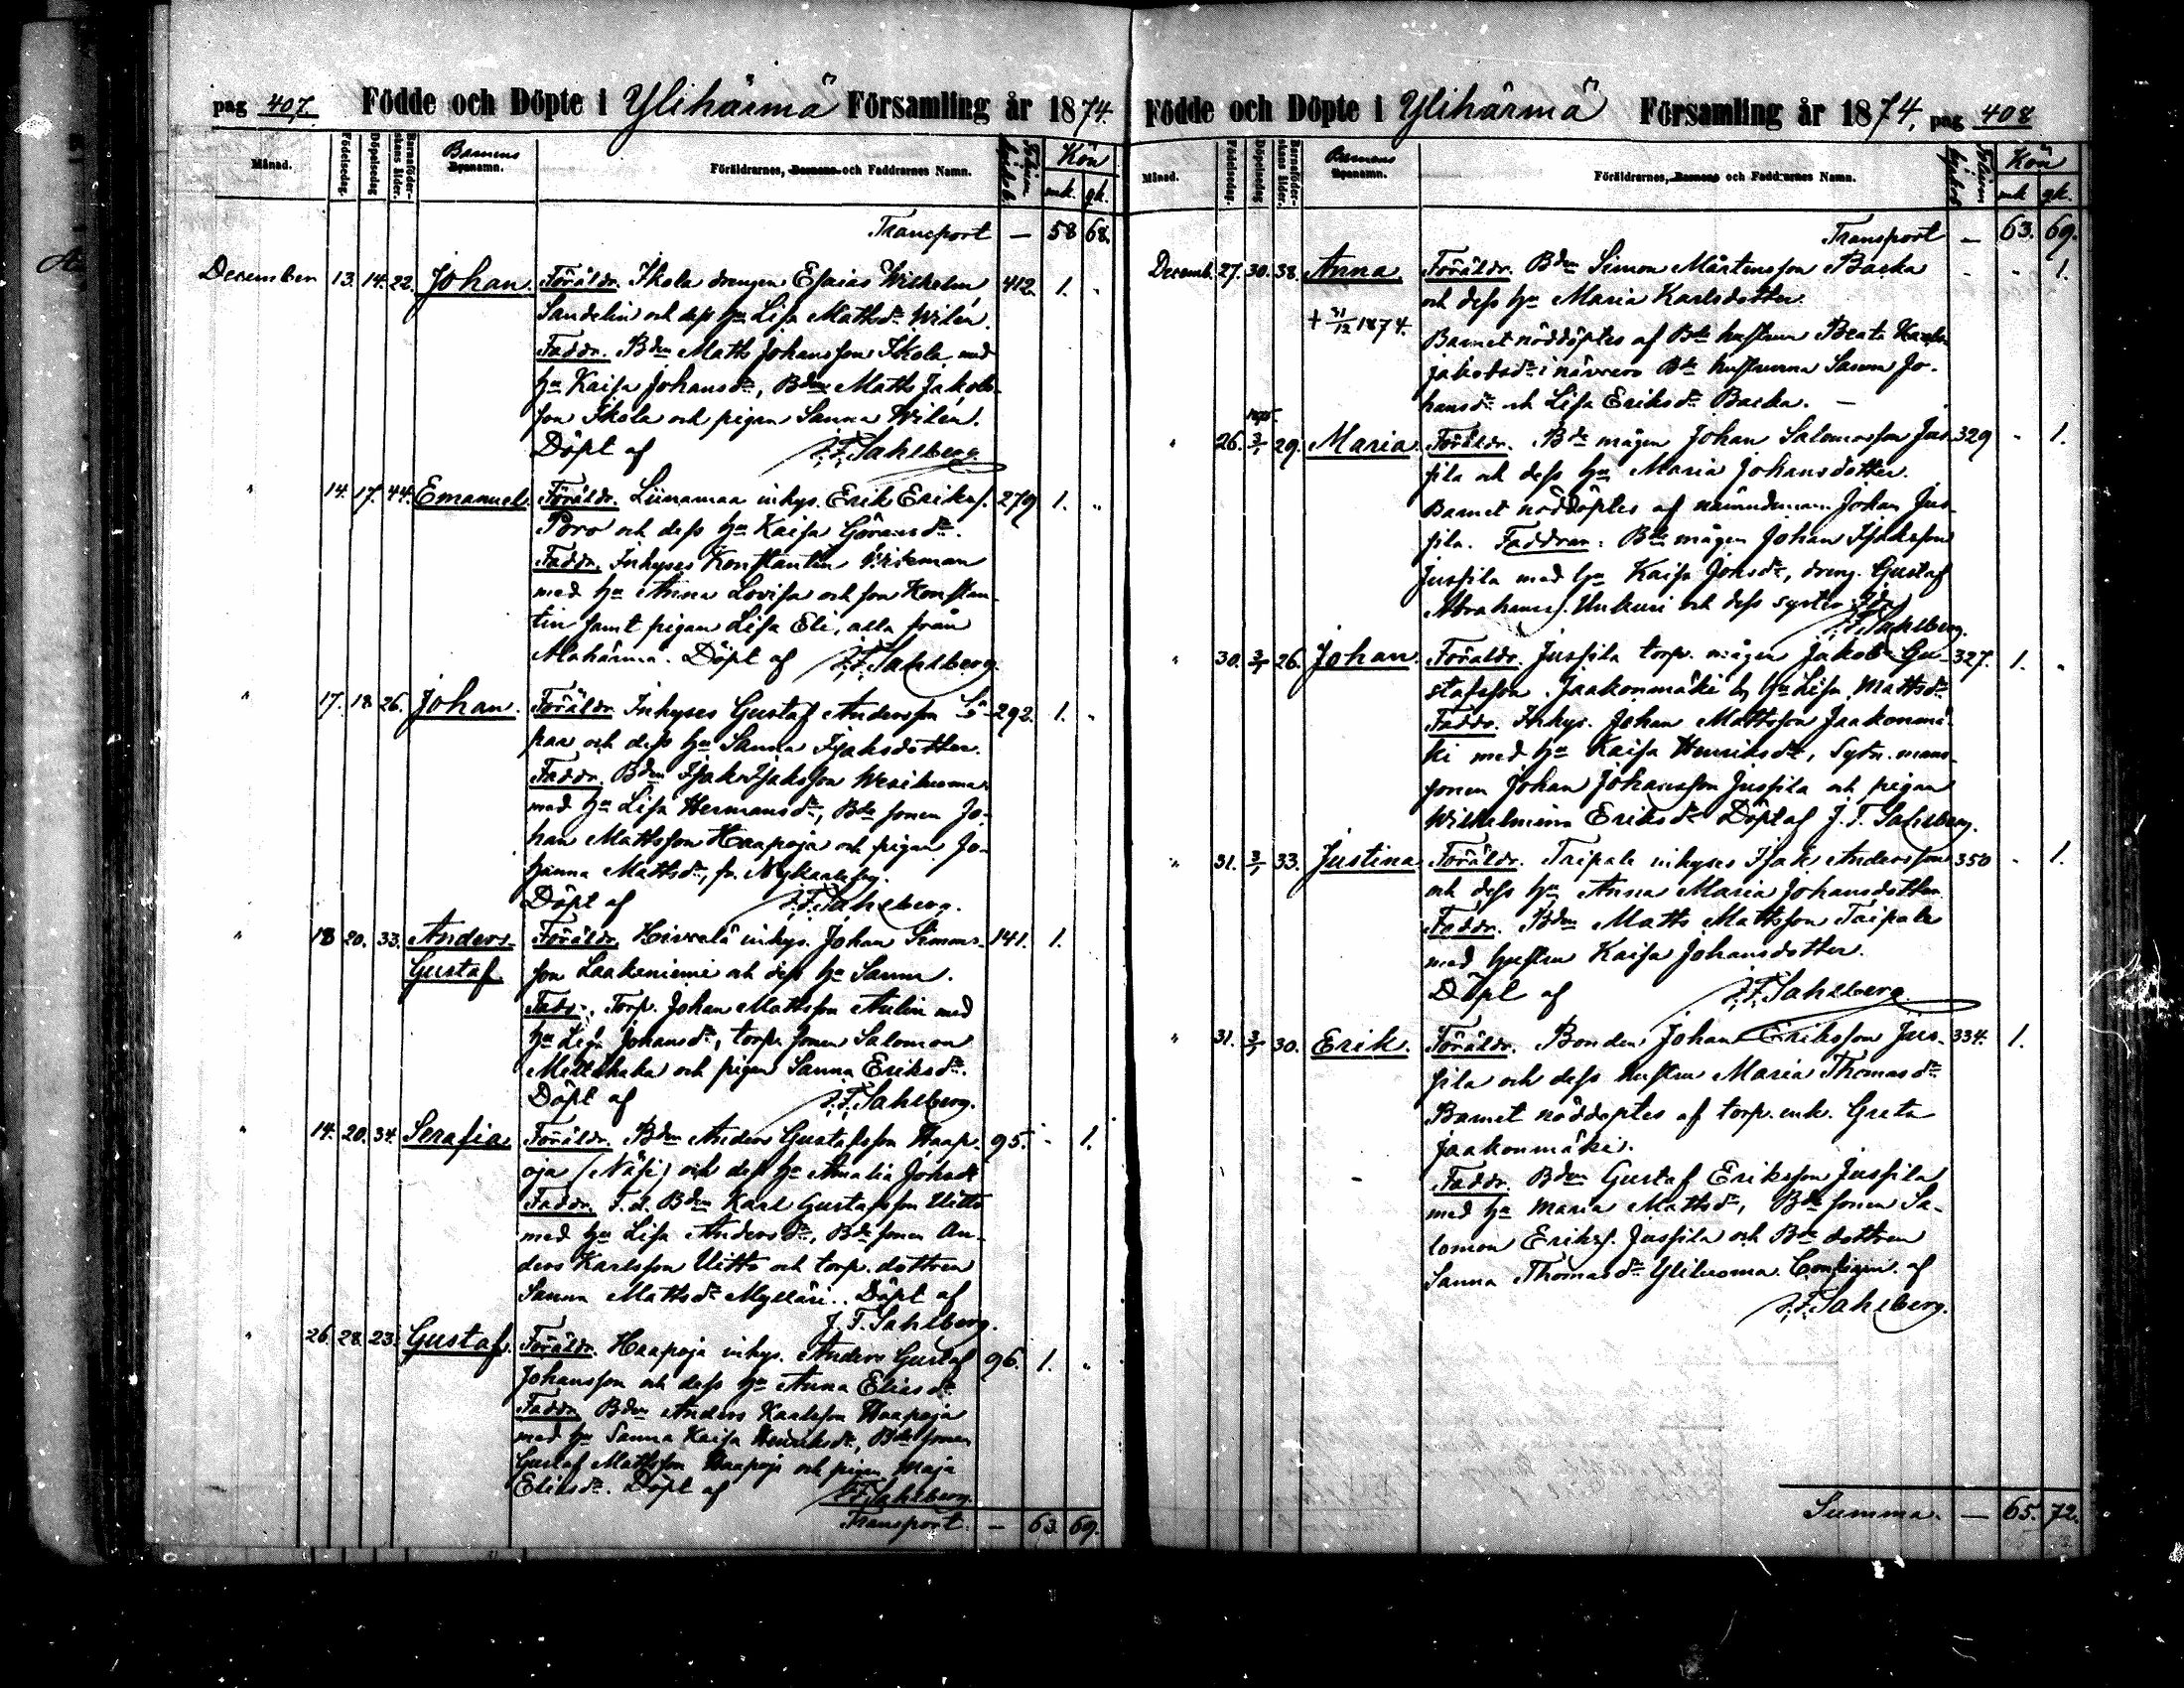 pag 407. Födde och Döpte i Ylihärmä Församling år 1874.
Månad. Födelsedag. Döpelsedag Barnaföderskans ålder. Barnens Byanamn. Föräldrarnes, Barnens och Faddrarnes Namn. Kön
mk. qk.
Transport — 58 68.
December 13. 14. 22. Johan. Föräldr. Ikola drengen Esaias Wilhelm 412. 1. "
Sandelin och dess hu Lisa Mattsdr Wilén.
Faddr. Bdn Matts Johansson Ikola med
hu Kaisa Johansdr, Bdn Matts Jakobs-
son Ikola och pigan Sanna Wilén.
Döpt af J. F. Sahlberg.
" 14. 17. 44. Emanuel. Föräldr. Liinamaa inhys. Erik Eriks. 279 1. "
Poro och dess hu Kaisa Göransdr.
Faddr. Inhyses Konstantin
med hu Anna Lovisa och son Konstan-
tin samt pigan Lisa Eli, alla från
Alahärmä. Döpt af J. F. Sahlberg.
" 17. 18 26. Johan. Föräldr. Inhyses Gustaf Andersson 292. 1. "
och dess hu Sanna Isaksdotter.
Faddr. Bdn Isak Isaksson
med hu Lisa Hermansdr, Bde sonen Jo-
han Mattsson Haapoja och pigan Jo-
hanna Mattsdr, fr. Nykarleby.
Döpt af J. F. Sahlberg.
" 18 20. 33. Anders Föräldr. inhys. Johan Simons- 141. 1.
Gustaf son Laakeniemi och dess hu Sanna.
Faddr. Torp. Johan Mattsson Aulin med
hu Lisa Johansdr, torp. sonen Salomon
och pigan Sanna Eriksdr.
Döpt af J. F. Sahlberg.
" 14. 20. 34. Serafia Föräldr. Bdn Anders Gustafsson Haap- 95. " 1.
oja (Näsi) och dess hu Amalia Johsdr
Faddr. F. d. Bdn Karl Gustafsson Uitto
med hu Lisa Andersdr, Bde sonen An-
ders Karlsson Uitto och torp. dottren
Sanna Mattsdr Mylläri. Döpt af
J. F. Sahlberg.
" 26. 28. 23. Gustaf. Föräldr. Haapoja inhys. Anders Gustaf 96. 1. "
Johansson och dess hu Anna Eliasdr
Faddr. Bdn Anders Karlsson Haapoja
med hu Sanna Kaisa Henriksdr, Bde sonen
Gustaf Mattsson Haapoja och pigan Maja
Eliasdr. Döpt af J. F. Sahlberg.
Transport. — 63. 69.
Födde och Döpte i Ylihärmä Församling år 1874, pag 408
Månad. Födelsedag. Döpelsedag Barnaföderskans ålder. Barnens Byanamn. Föräldrarnes, Barnens och Faddrarnes Namn. Kön
mk qk.
Transport — 63. 69.
Decemb. 27. 30. 38. Anna. Föräldr. Bdn Simon Mårtensson Backa - " 1.
och dess hu Maria Karlsdotter.
+ 31/12 1874. Barnet nöddöptes af Bde hustrun Beata
Jakobsdr i närvaro Bde hustrurna Sanna Jo-
hansdr och Lisa Eriksdr Backa. —
1875.
" 26. 3/1 29. Maria. Föräldr. Bde mågen Johan Salomonsson Jus- 329 " 1.
sila och dess hu Maria Johansdotter.
Barnet nöddöptes af nämndeman Johan Jus-
sila. Faddrar: Bde mågen Johan Isaksson
Jussila med hu Kaisa Johsdr, dreng. Gustaf
Abrahams. Unkuri och dess syster
J. F. Sahlberg.
" 30. 3/1 26. Johan. Föräldr. Jussila torp. mågen Jakob Gu- 327. 1. "
stafsson Jaakonmäki hu Lisa Mattsdr
Faddr. Inhys. Johan Mattsson Jaakonmä-
ki med hu Kaisa Henriksdr, Sytn. mans
sonen Johan Johansson Jussila och pigan
Wilhelmina Eriksdr Döpt af J. F. Sahlberg.
" 31. 3/1 33. Justina Föräldr. Taipale inhyses Isak Andersson 350 " 1.
och dess hu Anna Maria Johansdotter.
Faddr. Bdn Matts Mattsson Taipale
med hustru Kaisa Johansdotter.
Döpt af J. F. Sahlberg
" 31. 3/1 30. Erik. Föräldr. Bonden Johan Eriksson Jus- 334. 1.
sila och dess hustru Maria Thomasdr
Barnet nöddöptes af torp. enk. Greta
Jaakonmäki.
Faddr. Bdn Gustaf Eriksson Jussila
med hu Maria Mattsdr, Bde sonen Sa-
lomon Eriks. Jussila och Bde dottren
Sanna Thomasdr Yliluoma. af
J. F. Sahlberg.
Summa. — 65. 72.